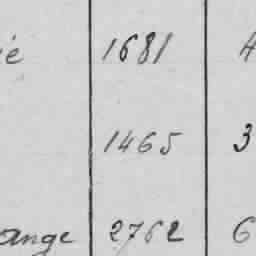 ié 1681 4
1465 3
ange 2762 6